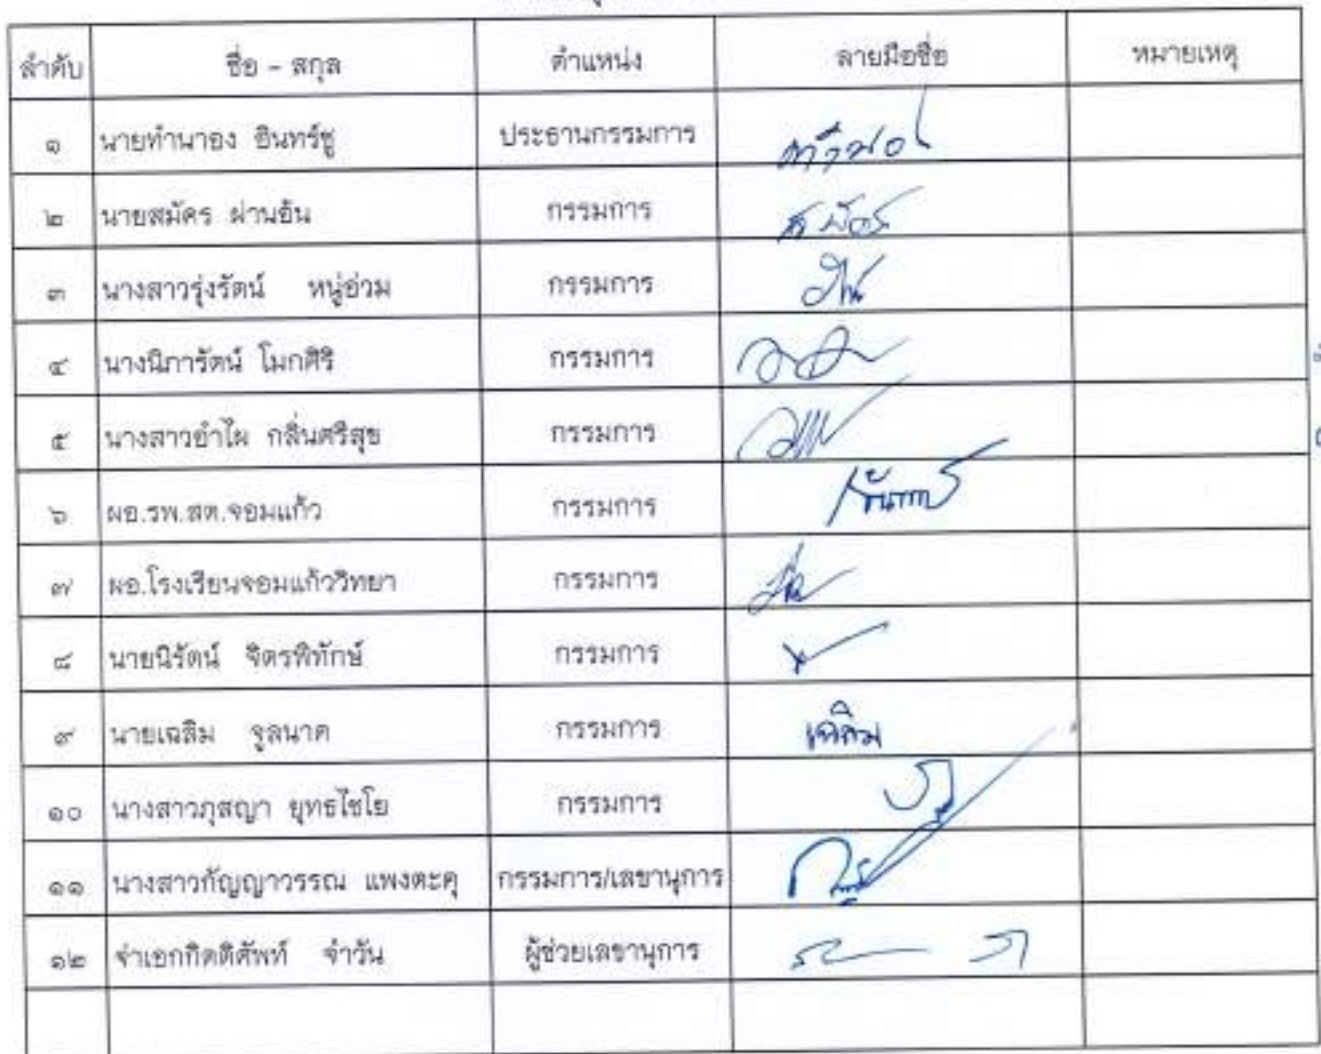 ลำดับ ชื่อ - สกุล ตำแหน่ง ลายมือชื่อ หมายเหตุ
๑ นายทำนาอง อินทร์ชู ประธานกรรมการ
๒ นายสมัคร ผ่านอ้น กรรมการ สมัคร
๓ นางสาวรุ่งรัตน์ หนู่อ่วม กรรมการ
๔ นางนิภารัตน์ โมกศิริ กรรมการ
๕ นางสาวอำไผ กลิ่นศรีสุข กรรมการ
๖ ผอ.รพ.สต.จอมแก้ว กรรมการ
๗ ผอ.โรงเรียนจอมแก้ววิทยา กรรมการ
๘ นายนิรัตน์ จิตรพิทักษ์ กรรมการ
๙ นายเฉลิม จูลนาค กรรมการ เฉลิม
๑๐ นางสาวภุสญา ยุทธไชโย กรรมการ
๑๑ นางสาวกัญญาวรรณ แพงตะคุ กรรมการ/เลขานุการ
๑๒ จ่าเอกกิตติศัพท์ จำวัน ผู้ช่วยเลขานุการ